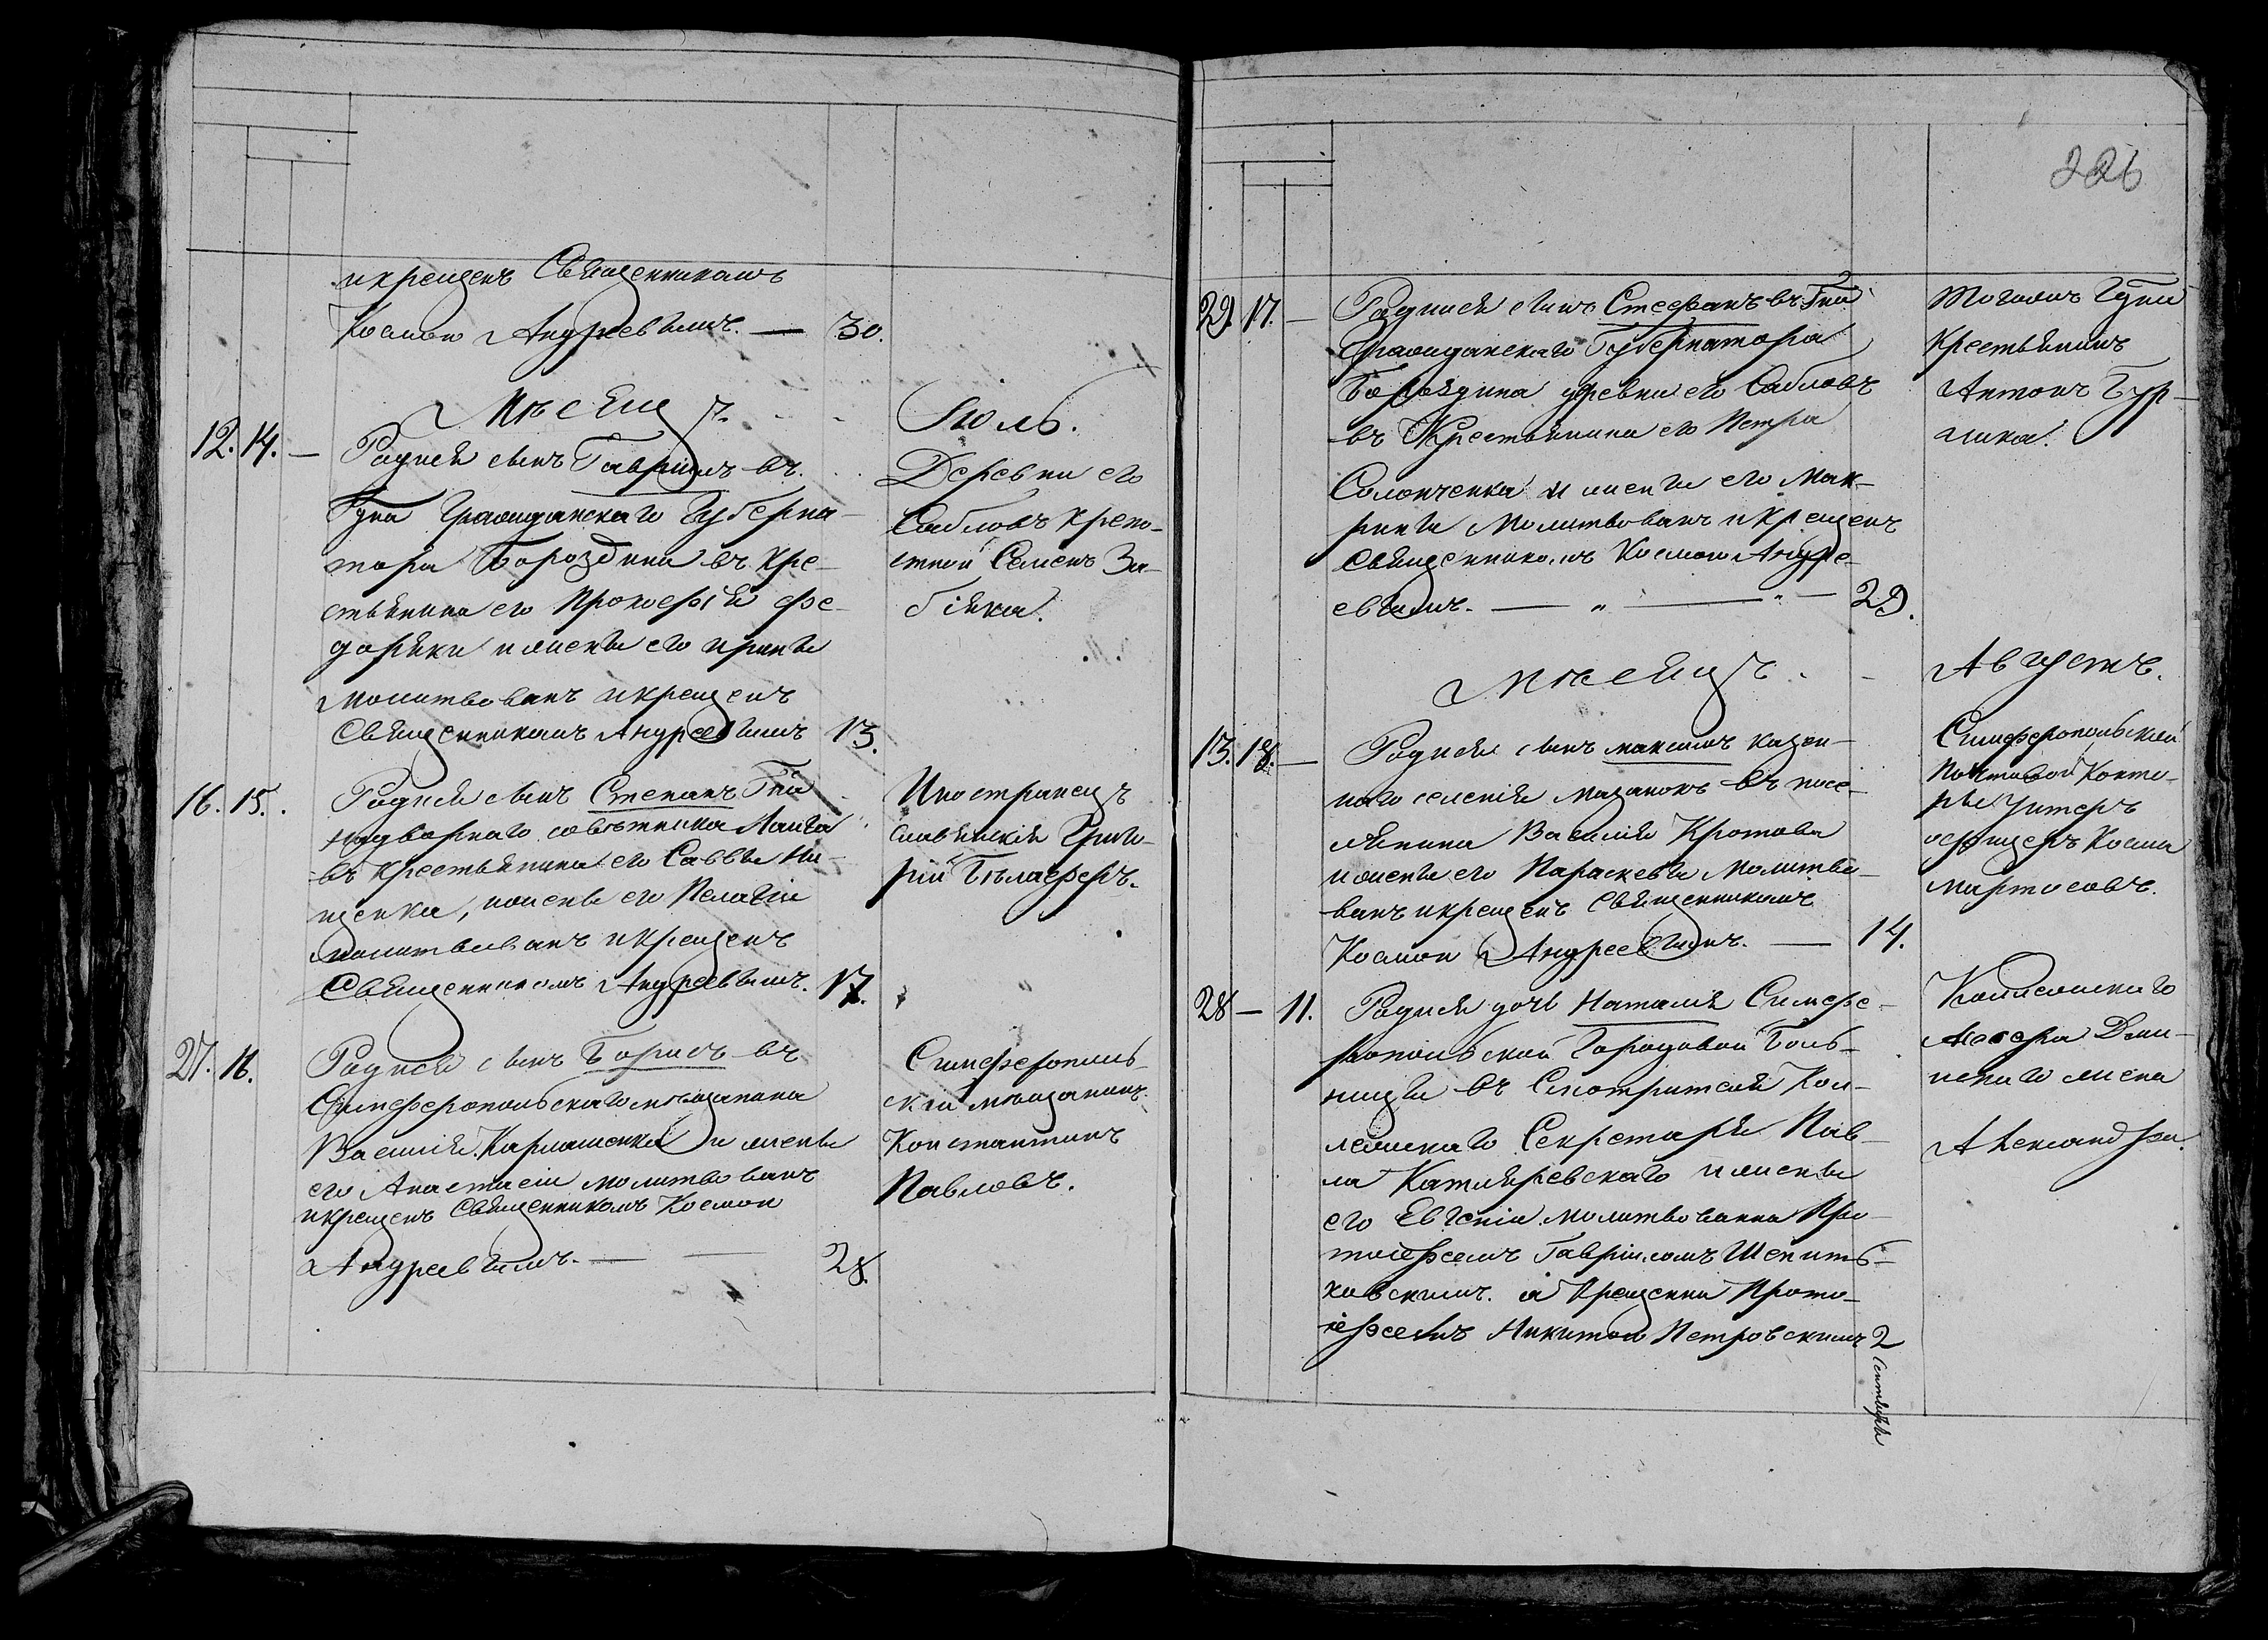 и крещенъ Священникомъ
Космою Андреевымъ. — 30.
Мѣсяцъ Іюль.
12. 14. — Родился сынъ Гавріилъ въ
Гдна Гражданскаго Губерна-
тора Бороздина въ кре-
стьянина его Прокофія Фе-
доряки и жены его Ирины
молитвованъ и крещенъ
Священникомъ Андреевымъ 13.
Деревни его
Сабловъ крепо-
стной Семенъ За-
біяка.
16. 15. Родился сынъ Степанъ Гна
надворнаго совѣтника Ланга
въ крестьянина его Саввы Ни-
щенка, и жены его Пелагіи
молитвованъ и крещенъ
Священникомъ Андреевымъ. 17.
Иностранецъ
славянскій Григо-
рій
27. 16. Родился сынъ Борисъ въ
Симферопольскаго мѣщанина
Василія Кармашенка и жены
его Анастасіи молитвованъ
и крещенъ Священникомъ Космою
Андреевымъ. — — 28.
Симферополь-
скій мѣщанинъ
Константинъ
Павловъ.
226
29. 17. — Родился сынъ Стефанъ въ Гна
Гражданскаго Губернатора
Бороздина деревни его Сабловъ
въ Крестьянина его Петра
Солонченка и жены его Мак-
рины Молитвованъ и крещенъ
Священникомъ Космою Андре-
евымъ. — „ — „ — 29.
Тогожъ Гдна
Крестьянинъ
Антонъ Бур-
лика.
Мѣсяцъ Августъ.
13. 18. — Родился сынъ Максимъ казен-
наго селенія Мазанокъ въ посе-
лянина Василія Кротова
и жены его Параскевы Молитво-
ванъ и крещенъ Священникомъ
Космою Андреевымъ. — 14.
Симферопольской
Почтовой Конто-
ры Унтеръ
офицеръ Косма
Мартосовъ.
28 — 11. Родися дочь Наталія Симфе-
ропольской Городовой Боль-
ницы въ Смотрителя Кол-
лежскаго Секретаря Пав-
ла Катляревскаго и жены
его Евгеніи молитвованна Про-
тоіереемъ Гавріиломъ Шепить-
ховскимъ. а Крещенна Прото-
іереемъ Никитою Петровскимъ 2
Сентября
Коллежскаго
Асесора
жена
Александра